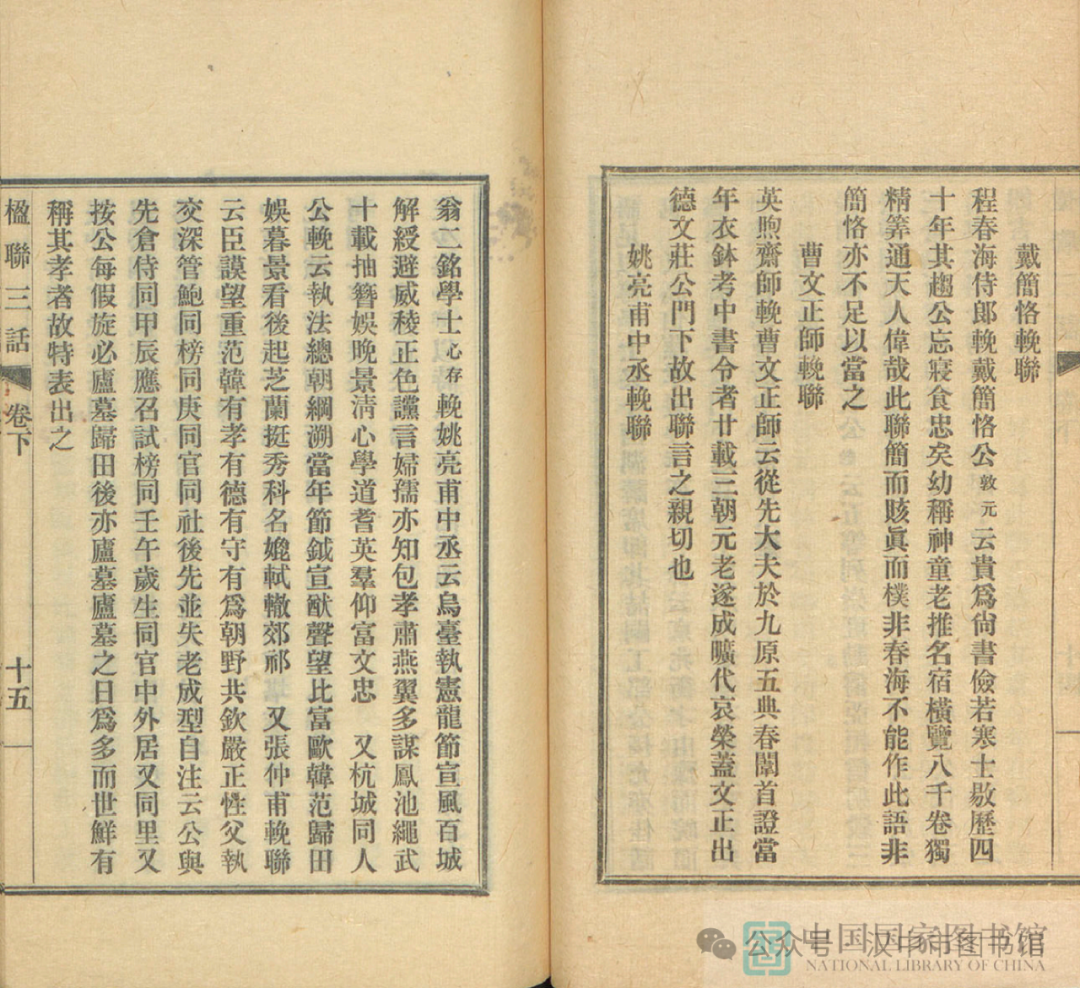 戴簡恪輓聯
程春海侍郎輓戴簡恪公敦元云貴爲尙書儉若寒士敭歷四
十年其趨公忘寢食忠矣幼稱神童老推名宿橫覽八千卷獨
精筭通天人偉哉此聯簡而賅眞而樸非春海不能作此語非
簡恪亦不足以當之
曹文正師輓聯
英煦齋師輓曹文正師云從先大夫於九原五典春闈首證當
年衣鉢考中書令者廿載三朝元老遂成曠代哀榮蓋文正出
德文莊公門下故出聯言之親切也
姚亮甫中丞輓聯
翁二銘學士心存輓姚亮甫中丞云烏臺執憲龍節宣風百城
解綬避威稜正色讜言婦孺亦知包孝肅燕翼多謀鳳池繩武
十載抽簪娛晚景淸心學道耆英羣仰富文忠 又杭城同人
公輓云執法總朝綱溯當年節鉞宣猷聲望比富歐韓范歸田
娛暮景看後起芝蘭挺秀科名媲軾轍郊祁 又張仲甫輓聯
云臣謨望重范韓有孝有德有守有爲朝野共欽嚴正性父執
交深管鮑同榜同庚同官同社後先並失老成型自注云公與
先倉侍同甲辰應召試榜同壬午歲生同官中外居又同里又
按公每假旋必廬墓歸田後亦廬墓廬墓之日爲多而世鮮有
稱其孝者故特表出之
楹聯三話 卷下 十五
公众号 汉中市图书馆
中国国家图书馆
NATIONAL LIBRARY OF CHINA